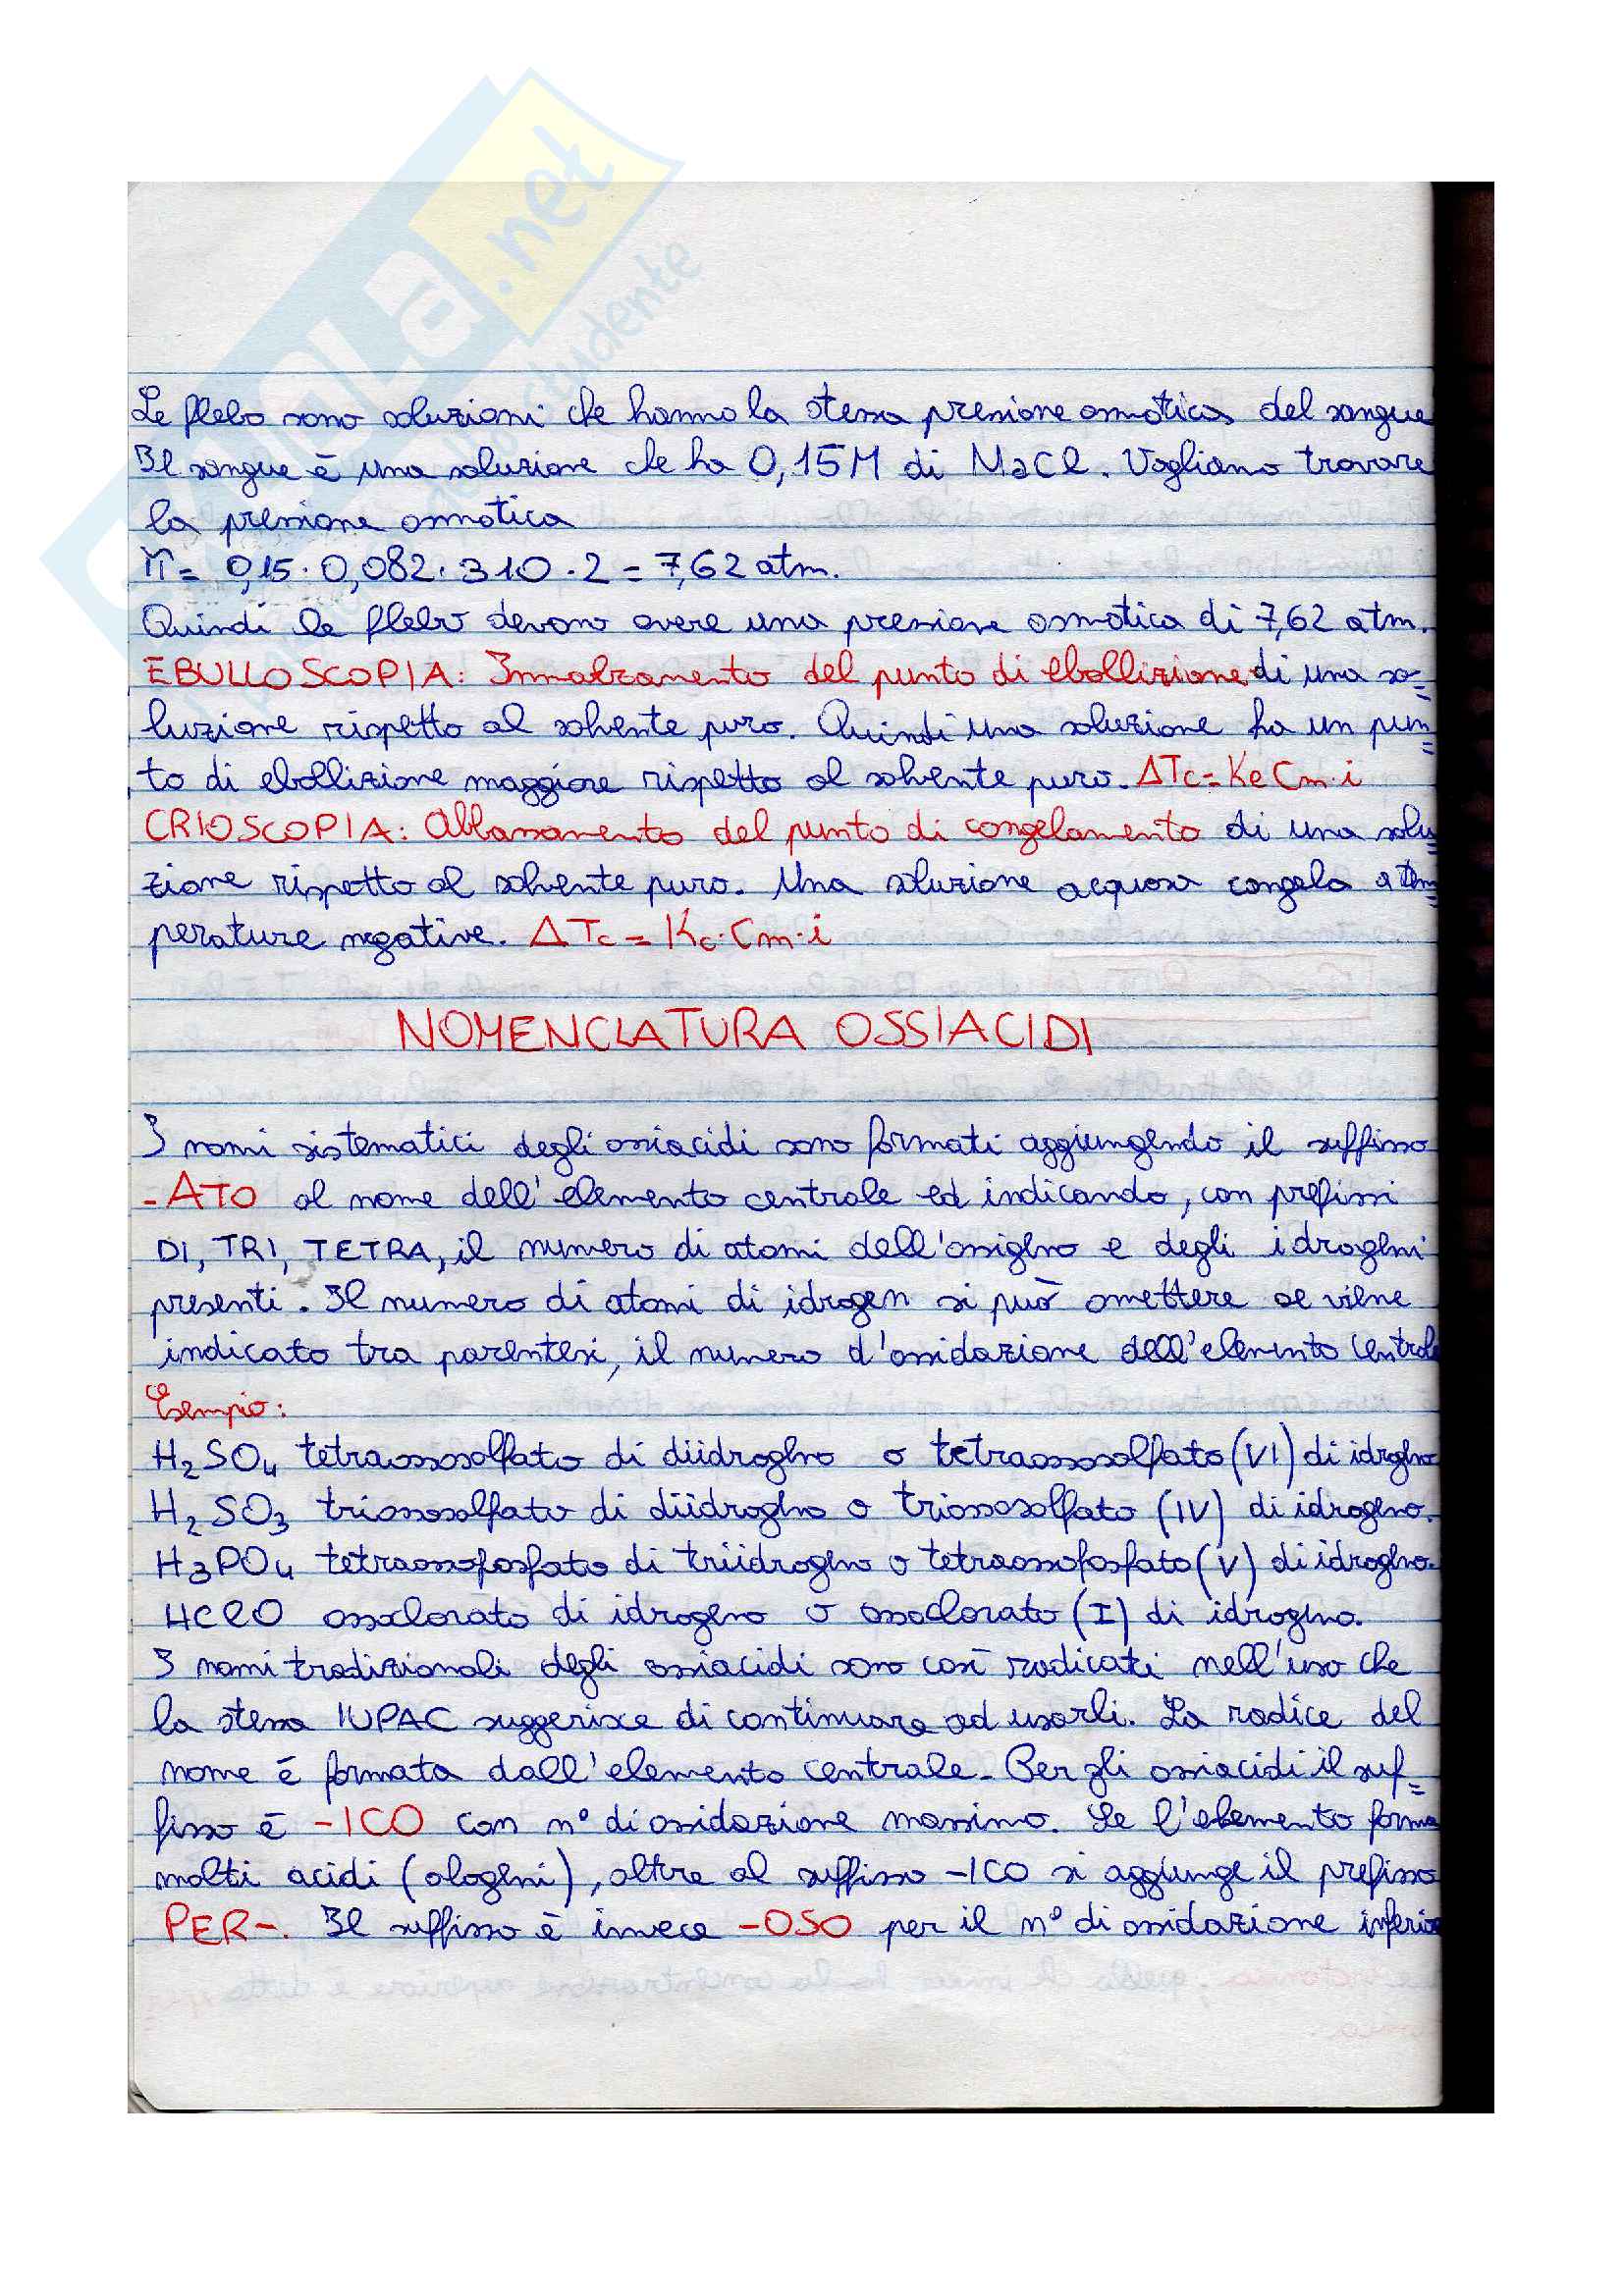 Le flebo sono soluzioni che hanno la stessa pressione osmotica del sangue
Il sangue è una soluzione che ha 0,15M di NaCl. Vogliamo trovare
la pressione osmotica
π = 0,15 · 0,082 · 310 · 2 = 7,62 atm.
Quindi le flebo devono avere una pressione osmotica di 7,62 atm.
EBULLOSCOPIA: Innalzamento del punto di ebollizione di una so=
luzione rispetto al solvente puro. Quindi una soluzione ha un pun=
to di ebollizione maggiore rispetto al solvente puro. ΔTc = Ke Cm · i
CRIOSCOPIA: Abbassamento del punto di congelamento di una solu=
zione rispetto al solvente puro. Una soluzione acquosa congela a tem=
perature negative. ΔTc = Kc · Cm · i
NOMENCLATURA OSSIACIDI
I nomi sistematici degli ossiacidi sono formati aggiungendo il suffisso
-ATO al nome dell'elemento centrale ed indicando, con prefissi
DI, TRI, TETRA, il numero di atomi dell'ossigeno e degli idrogeni
presenti. Il numero di atomi di idrogen si può omettere se viene
indicato tra parentesi, il numero d'ossidazione dell'elemento centrale
Esempio:
H₂SO₄ tetraossosolfato di diidrogeno o tetraossosolfato (VI) di idrogeno
H₂SO₃ triossosolfato di diidrogeno o triossosolfato (IV) di idrogeno.
H₃PO₄ tetraossofosfato di triidrogeno o tetraossofosfato (V) di idrogeno.
HClO ossoclorato di idrogeno o ossoclorato (I) di idrogeno.
I nomi tradizionali degli ossiacidi sono così radicati nell'uso che
la stessa IUPAC suggerisce di continuare ad usarli. La radice del
nome è formata dall'elemento centrale. Per gli ossiacidi il suf=
fisso è -ICO con n° di ossidazione massimo. Se l'elemento forma
molti acidi (alogeni), oltre al suffisso -ICO si aggiunge il prefisso
PER-. Il suffisso è invece -OSO per il n° di ossidazione inferio
.net
studente